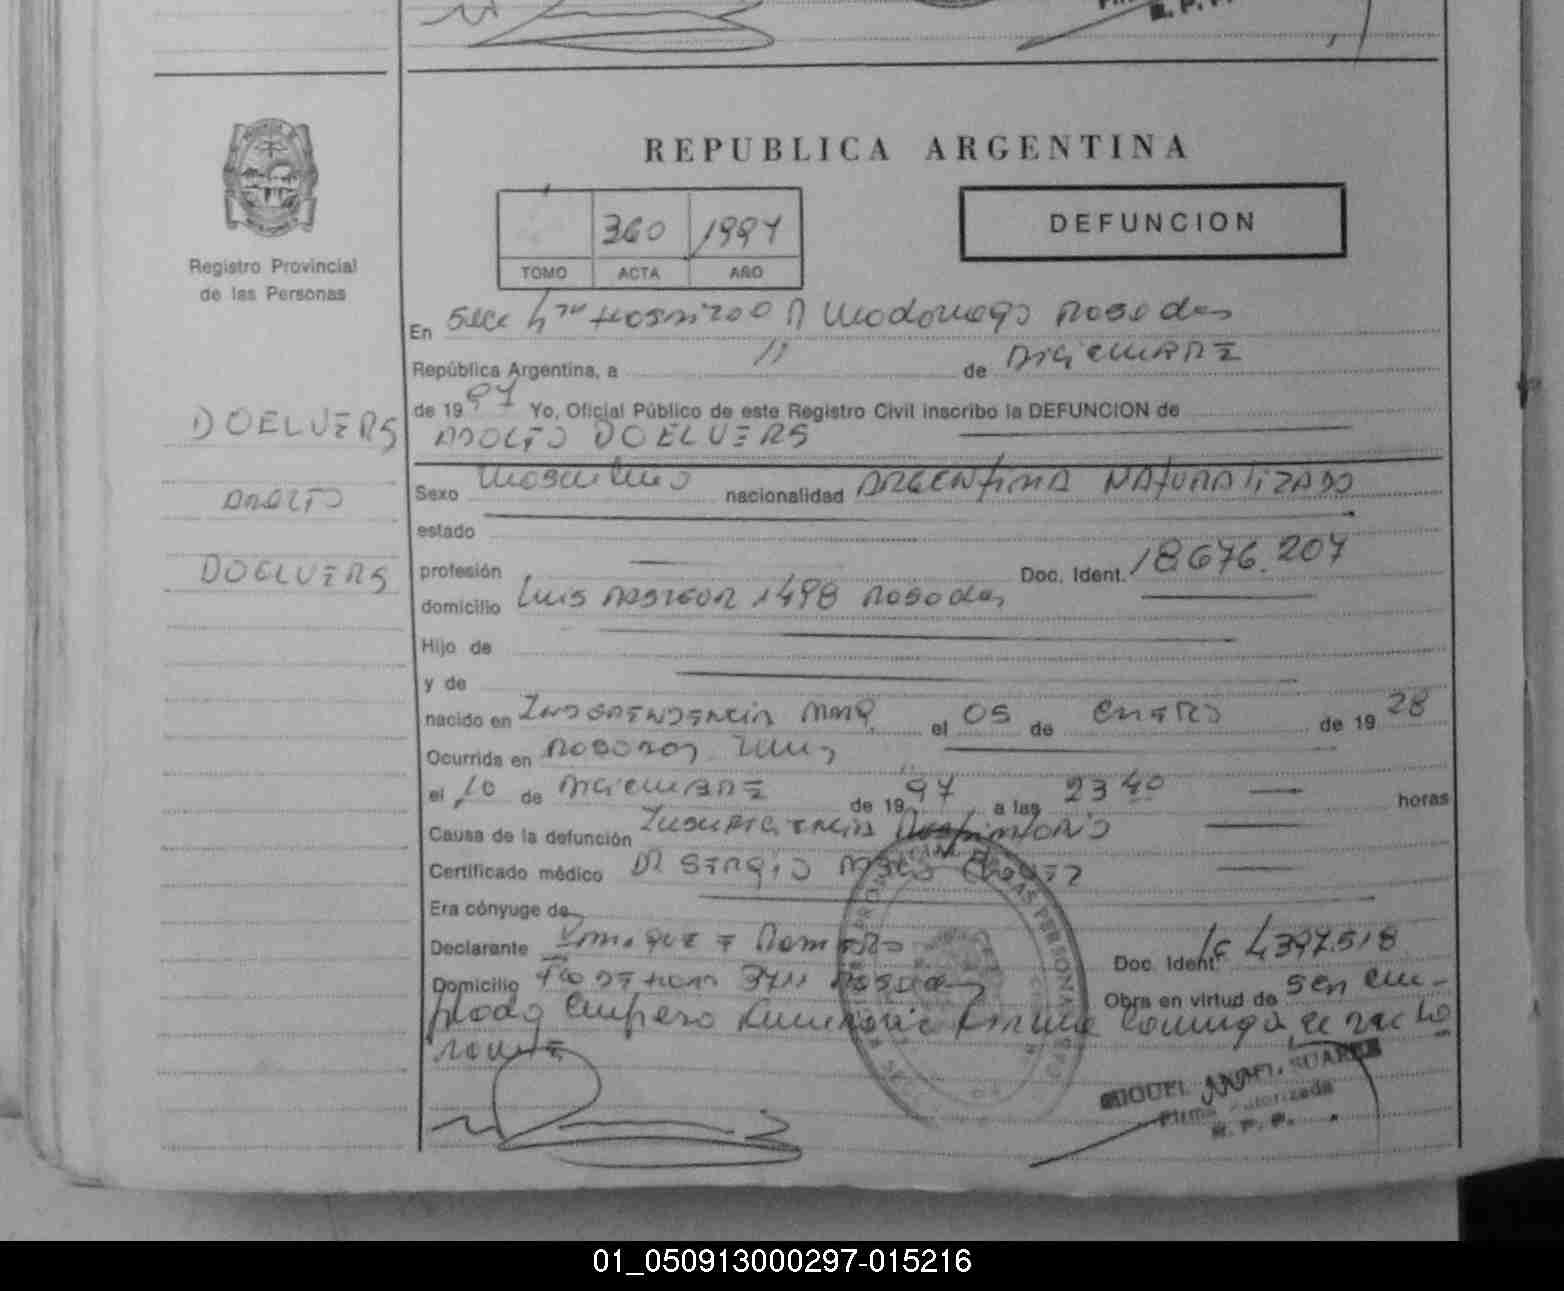 REPUBLICA ARGENTINA
360 1997
DEFUNCION
TOMO ACTA AÑO
Registro Provincial
de las Personas
En Secc Hospital R Madariaga Posadas
República Argentina, a 11 de DICIEMBRE
de 1997 Yo, Oficial Público de este Registro Civil inscribo la DEFUNCION de
DOELVERS
ADOLFO DOELVERS
Sexo Masculino nacionalidad ARGENTINA NATURALIZADO
ADOLFO
estado
DOELVERS
profesión Doc. Ident. 18.676.207
domicilio Luis PASTEUR 1498 Posadas
Hijo de
y de
nacido en INDEPENDENCIA el 05 de ENERO de 1928
Ocurrida en Posadas
el 10 de DICIEMBRE de 1997 a las 23 40 horas
Causa de la defunción Insuficiencia
Certificado médico DR SERGIO
Era cónyuge de
Declarante ENRIQUE ROMERO Doc. Ident. 4.397.518
Domicilio 3711 Posadas Obra en virtud de ser em-
pleado empresa
MIGUEL ANGEL SUAREZ
Firma Autorizada
R. P. P.
01_050913000297-015216